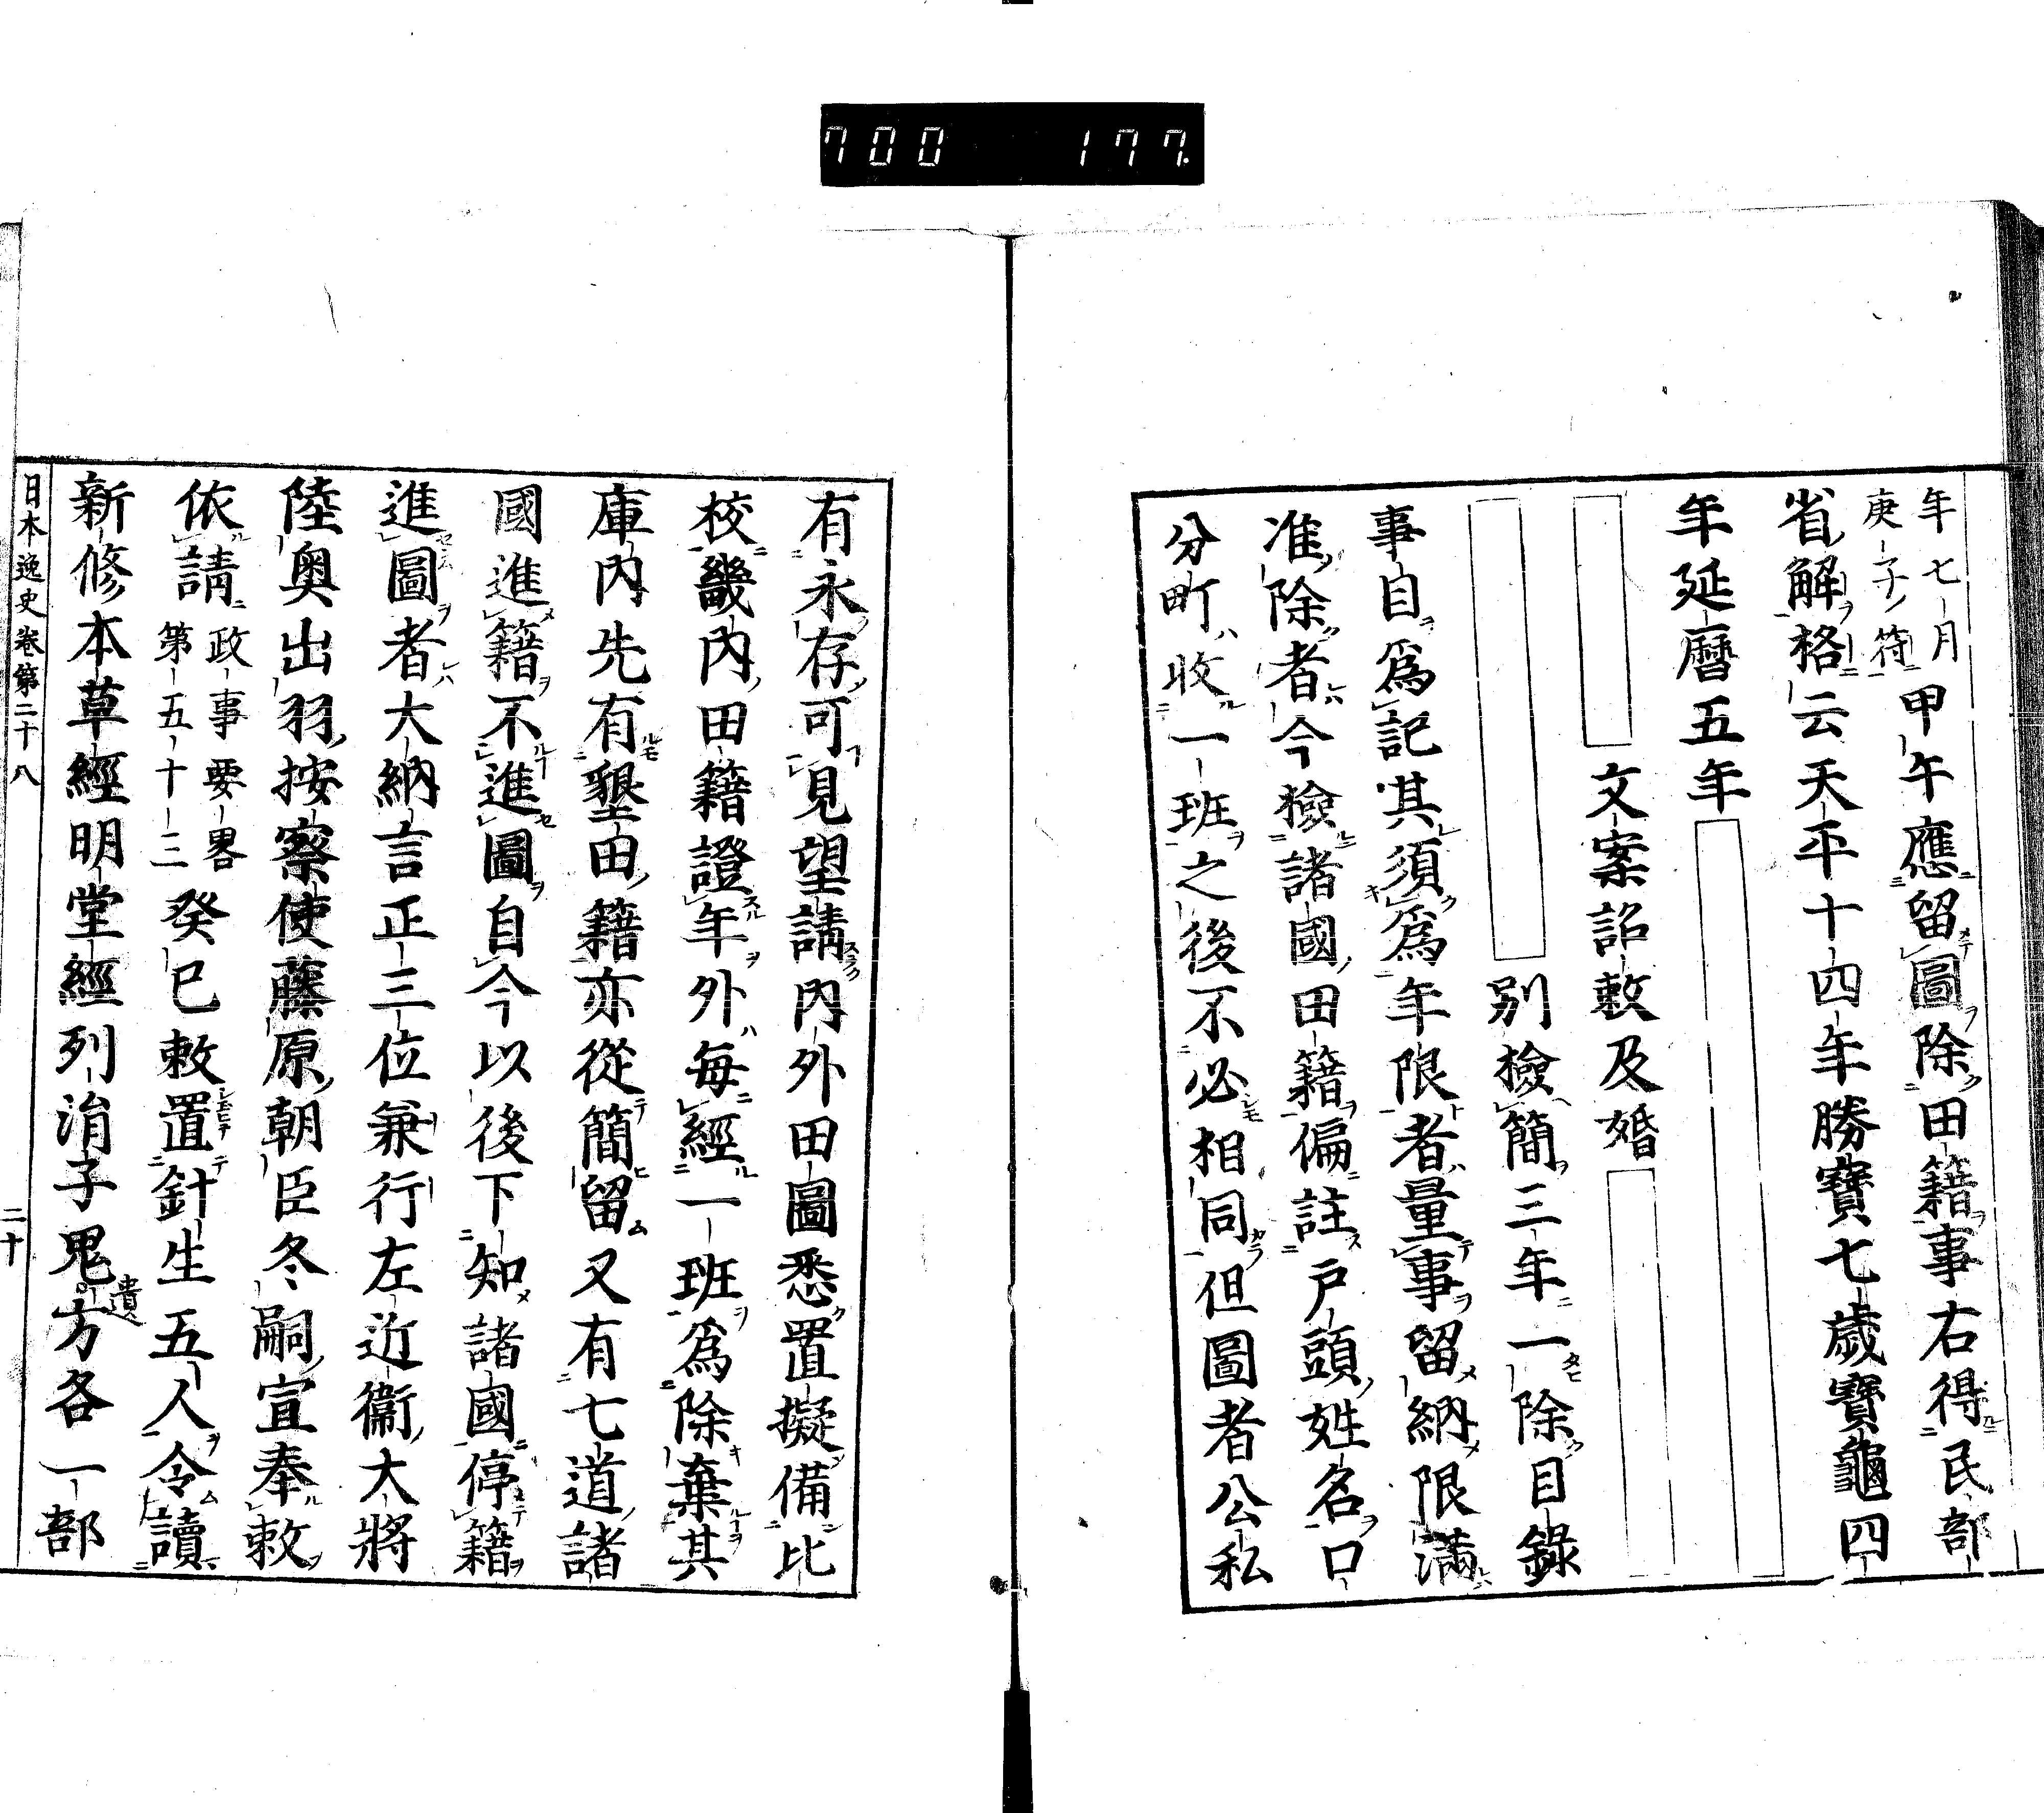 700 177.
年七月
庚子符
甲午應留圖除田籍事右得民部
省解格云天平十四年勝寶七歳寶龜四
年延曆五年
文案詔敕及婚
別檢簡三年一除目錄
事自爲記其須爲年限者量事留納限滿
准除者今檢諸國田籍偏註戶頭姓名口
分町收一班之後不必相同但圖者公私
有永存可見望請內外田圖悉置擬備比
校畿內田籍證年外每經一班爲除棄其
庫內先有墾田籍亦從簡留又有七道諸
國進籍不進圖自今以後下知諸國停籍
進圖者大納言正三位兼行左近衞大將
陸奧出羽按察使藤原朝臣冬嗣宣奉敕
依請
政事要畧
第五十三
癸巳敕置針生五人令讀
新修本草經明堂經列涓子鬼方各一部
遺
日本逸史卷第二十八
二十